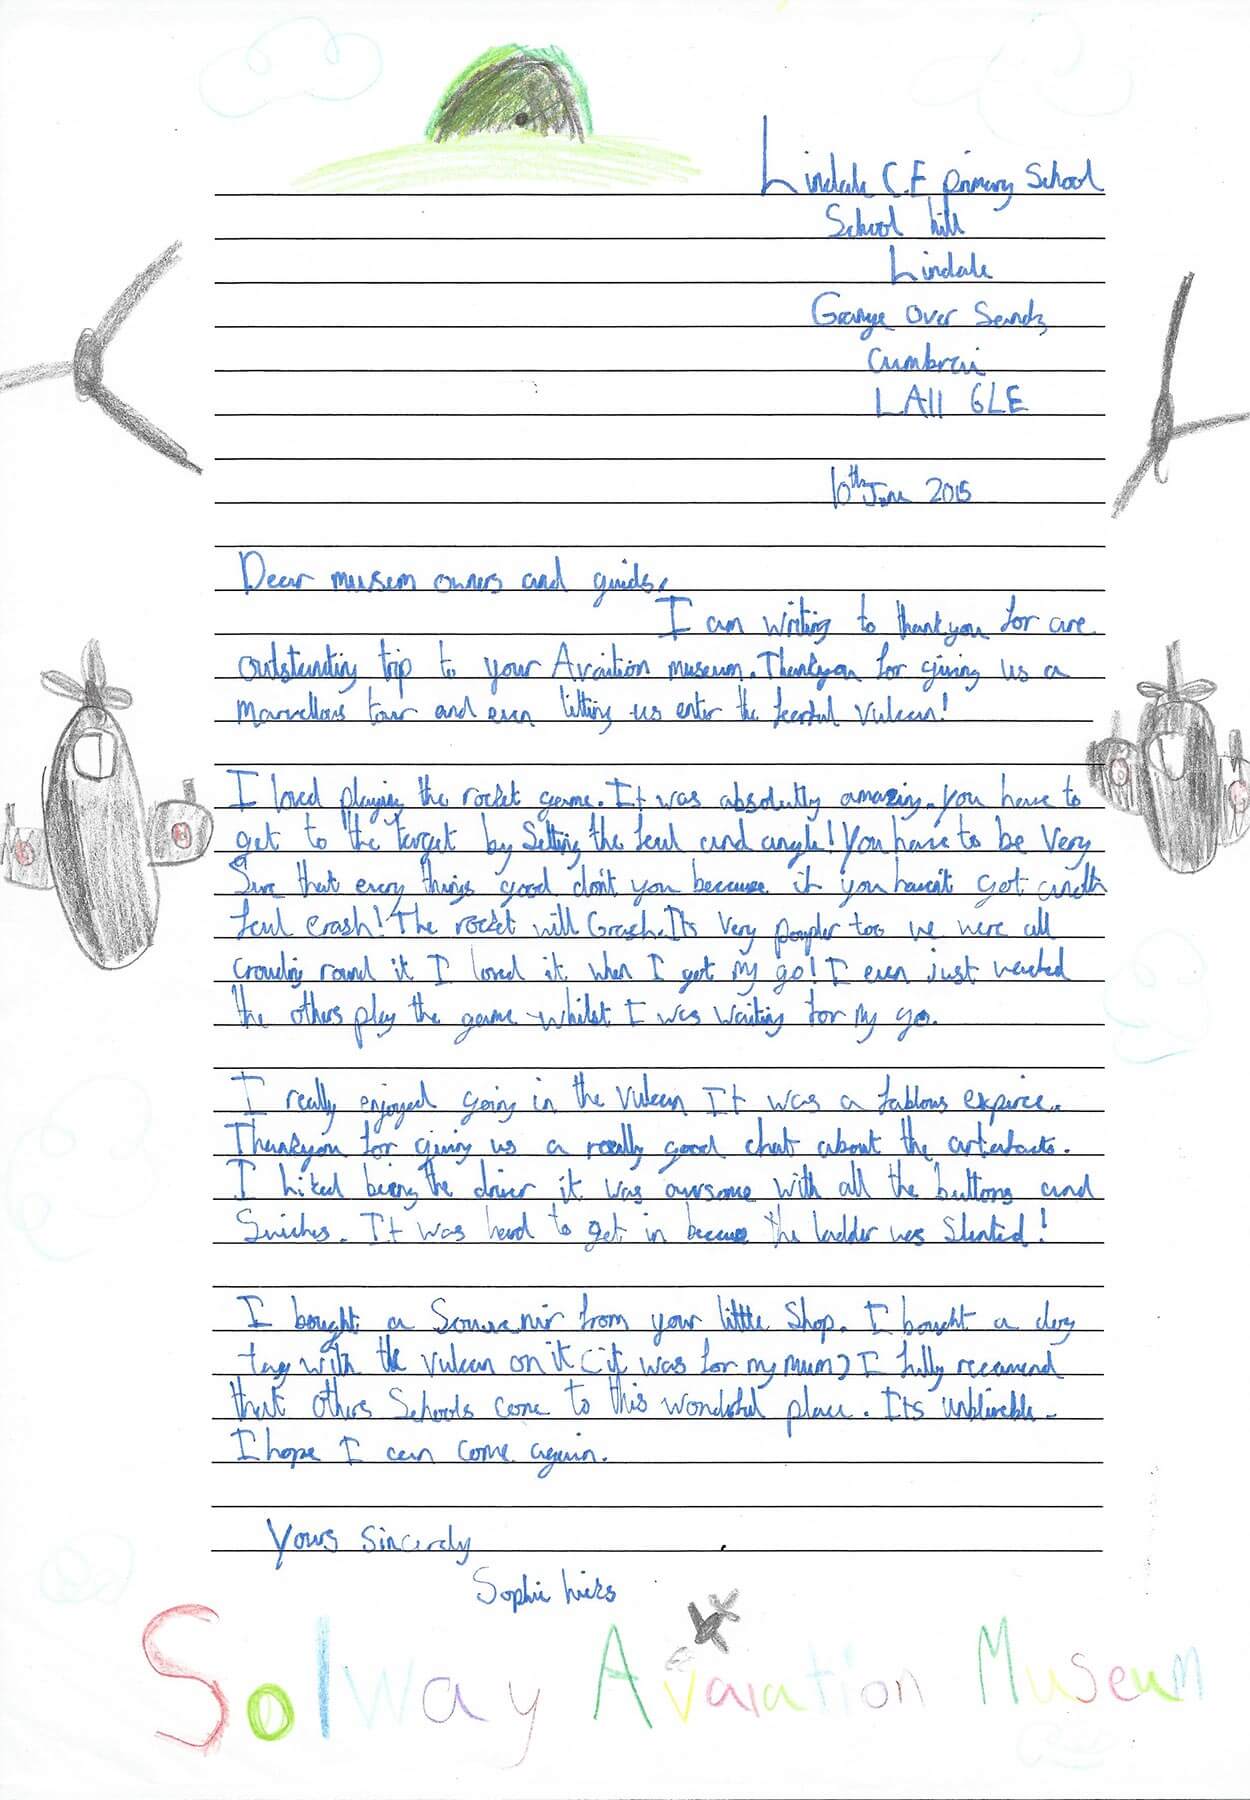 Lindale C.E primary School
School hill
Lindale
Grange Over Sands
Cumbrai
LA11 6LE
10th June 2015
Dear musem owners and guids,
I am writing to thankyou for are
outstanding trip to your Avaition museum. Thankyou for giving us a
marvellous tour and even letting us enter the fearful Vulcan!
I loved playing the rocket game. It was absolutly amazing. you have to
get to the target by Setting the feul and angle! You have to be Very
Sure that every things good don't you because if you haven't got enoth
feul crash! The rocket will Crash. Its Very poupler too we were all
crowding round it I loved it when I got my go! I even just watched
the others play the game whilst I was waiting for my go.
I really enjoyed going in the Vulcan It was a fablous expirce.
Thankyou for giving us a really good chat about the artefacts.
I Liked being the driver it was awsome with all the buttons and
Swiches. It was hard to get in because the ladder was Slanted!
I bought a Souvenir from your little Shop. I bought a dog
tag with the vulcan on it (it was for my mum) I fully recomend
that others Schools come to this wonderful place. Its unblivible.
I hope I can come again.
Yours Sincerely
Sophie hicks
Solway Avaiation Museum